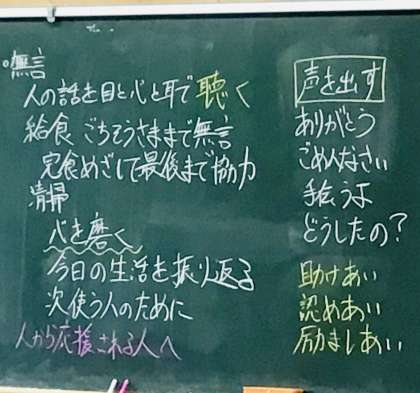 。無言
人の話を目と心と耳で聴く
給食 ごちそうさままで無言
完食めざして最後まで協力
清掃
心を磨く
今日の生活を振り返る
次使う人のために
人から応援される人へ
声を出す
ありがとう
ごめんなさい
手伝うよ
どうしたの?
助けあい
認めあい
励ましあい